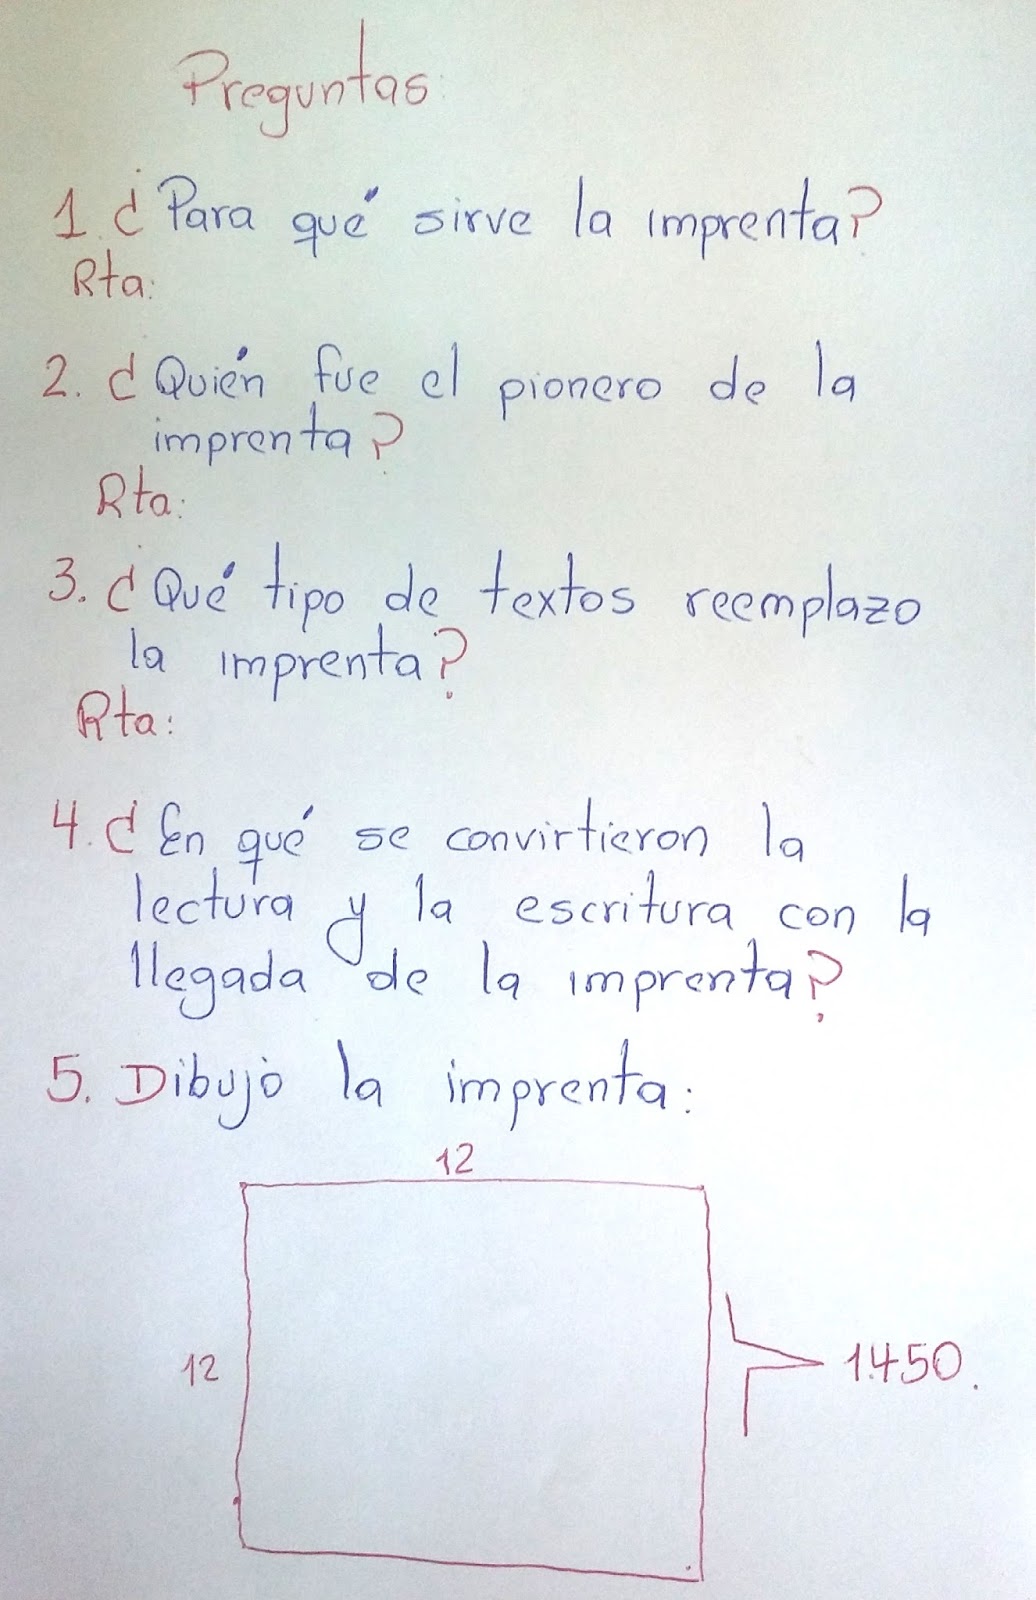 Preguntas
1. ¿Para qué sirve la imprenta?
Rta:
2. ¿Quién fue el pionero de la
imprenta?
Rta:
3. ¿Qué tipo de textos reemplazo
la imprenta?
Rta:
4. ¿En qué se convirtieron la
lectura y la escritura con la
llegada de la imprenta?
5. Dibujo la imprenta:
12
12
1.450.